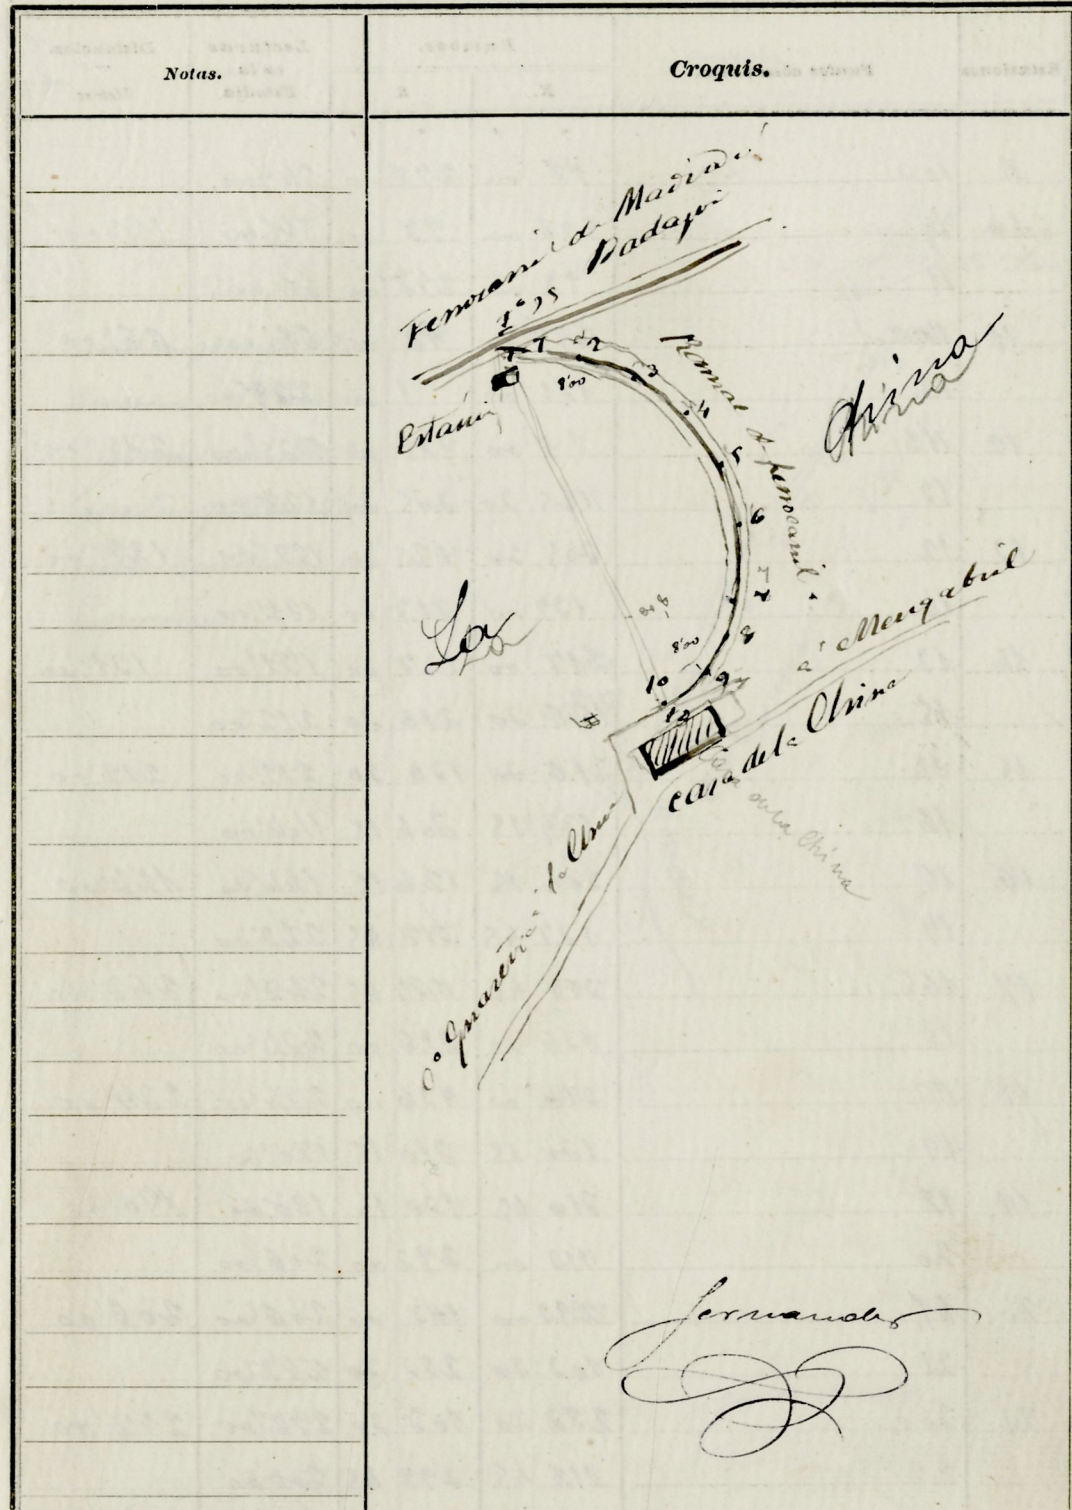 Notas.
Croquis.
Ferrocarril de Madrid á
Badajoz
1 2 3 4 5 6 7 8 9 10
800
Ramal de ferrocarril.
China
La
800
10
B
á Mengabril
Casa de la China
Casa de la China
Fernandez